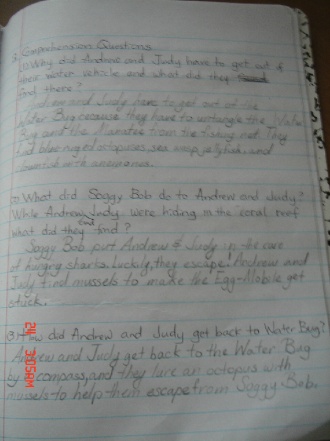 Comprehension Questions
1) Why did Andrew and Judy have to get out of
their water vehicle and what did they
find there?
Andrew and Judy have to get out of the
Water Bug because they have to untangle the Water
Bug and the from the fishing net. They
find blue ringed octopuses, sea wasp jellyfish, and
clownfish with anemones.
2) What did Soggy Bob do to Andrew and Judy?
While Andrew Judy were hiding in the coral reef
and
what did they find?
Soggy Bob put Andrew & Judy in the cave
of hungry sharks. Luckily, they escape! Andrew and
Judy find mussels to make the Egg-Mobile get
stuck.
3) How did Andrew and Judy get back to Water Bug?
Andrew and Judy get back to the Water Bug
by compass, and they lure an octopus with
mussels to help them escape from Soggy Bob.